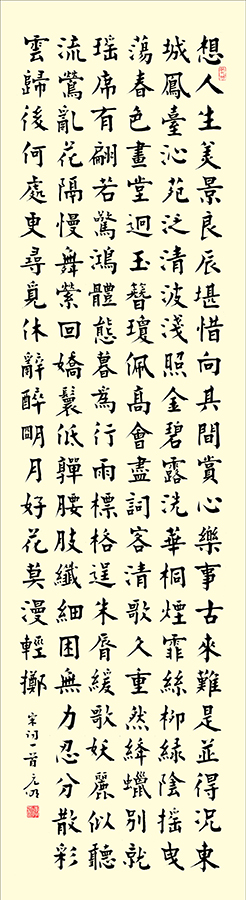 想人生美景良辰堪惜向其間賞心樂事古來難是並得況東
城鳳臺沁苑泛清波淺照金碧露洗華桐煙霏絲柳綠陰摇曳
蕩春色畫堂迥玉簪瓊佩高會盡詞客清歌久重然絳蠟別就
瑶席有翩若驚鴻體態暮為行雨標格逞朱脣緩歌妖麗似聽
流鶯亂花隔慢舞縈回嬌鬟低軃腰肢纖細困無力忍分散彩
雲歸後何處更尋覓休辭醉眀月好花莫漫輕擲
宋词一首